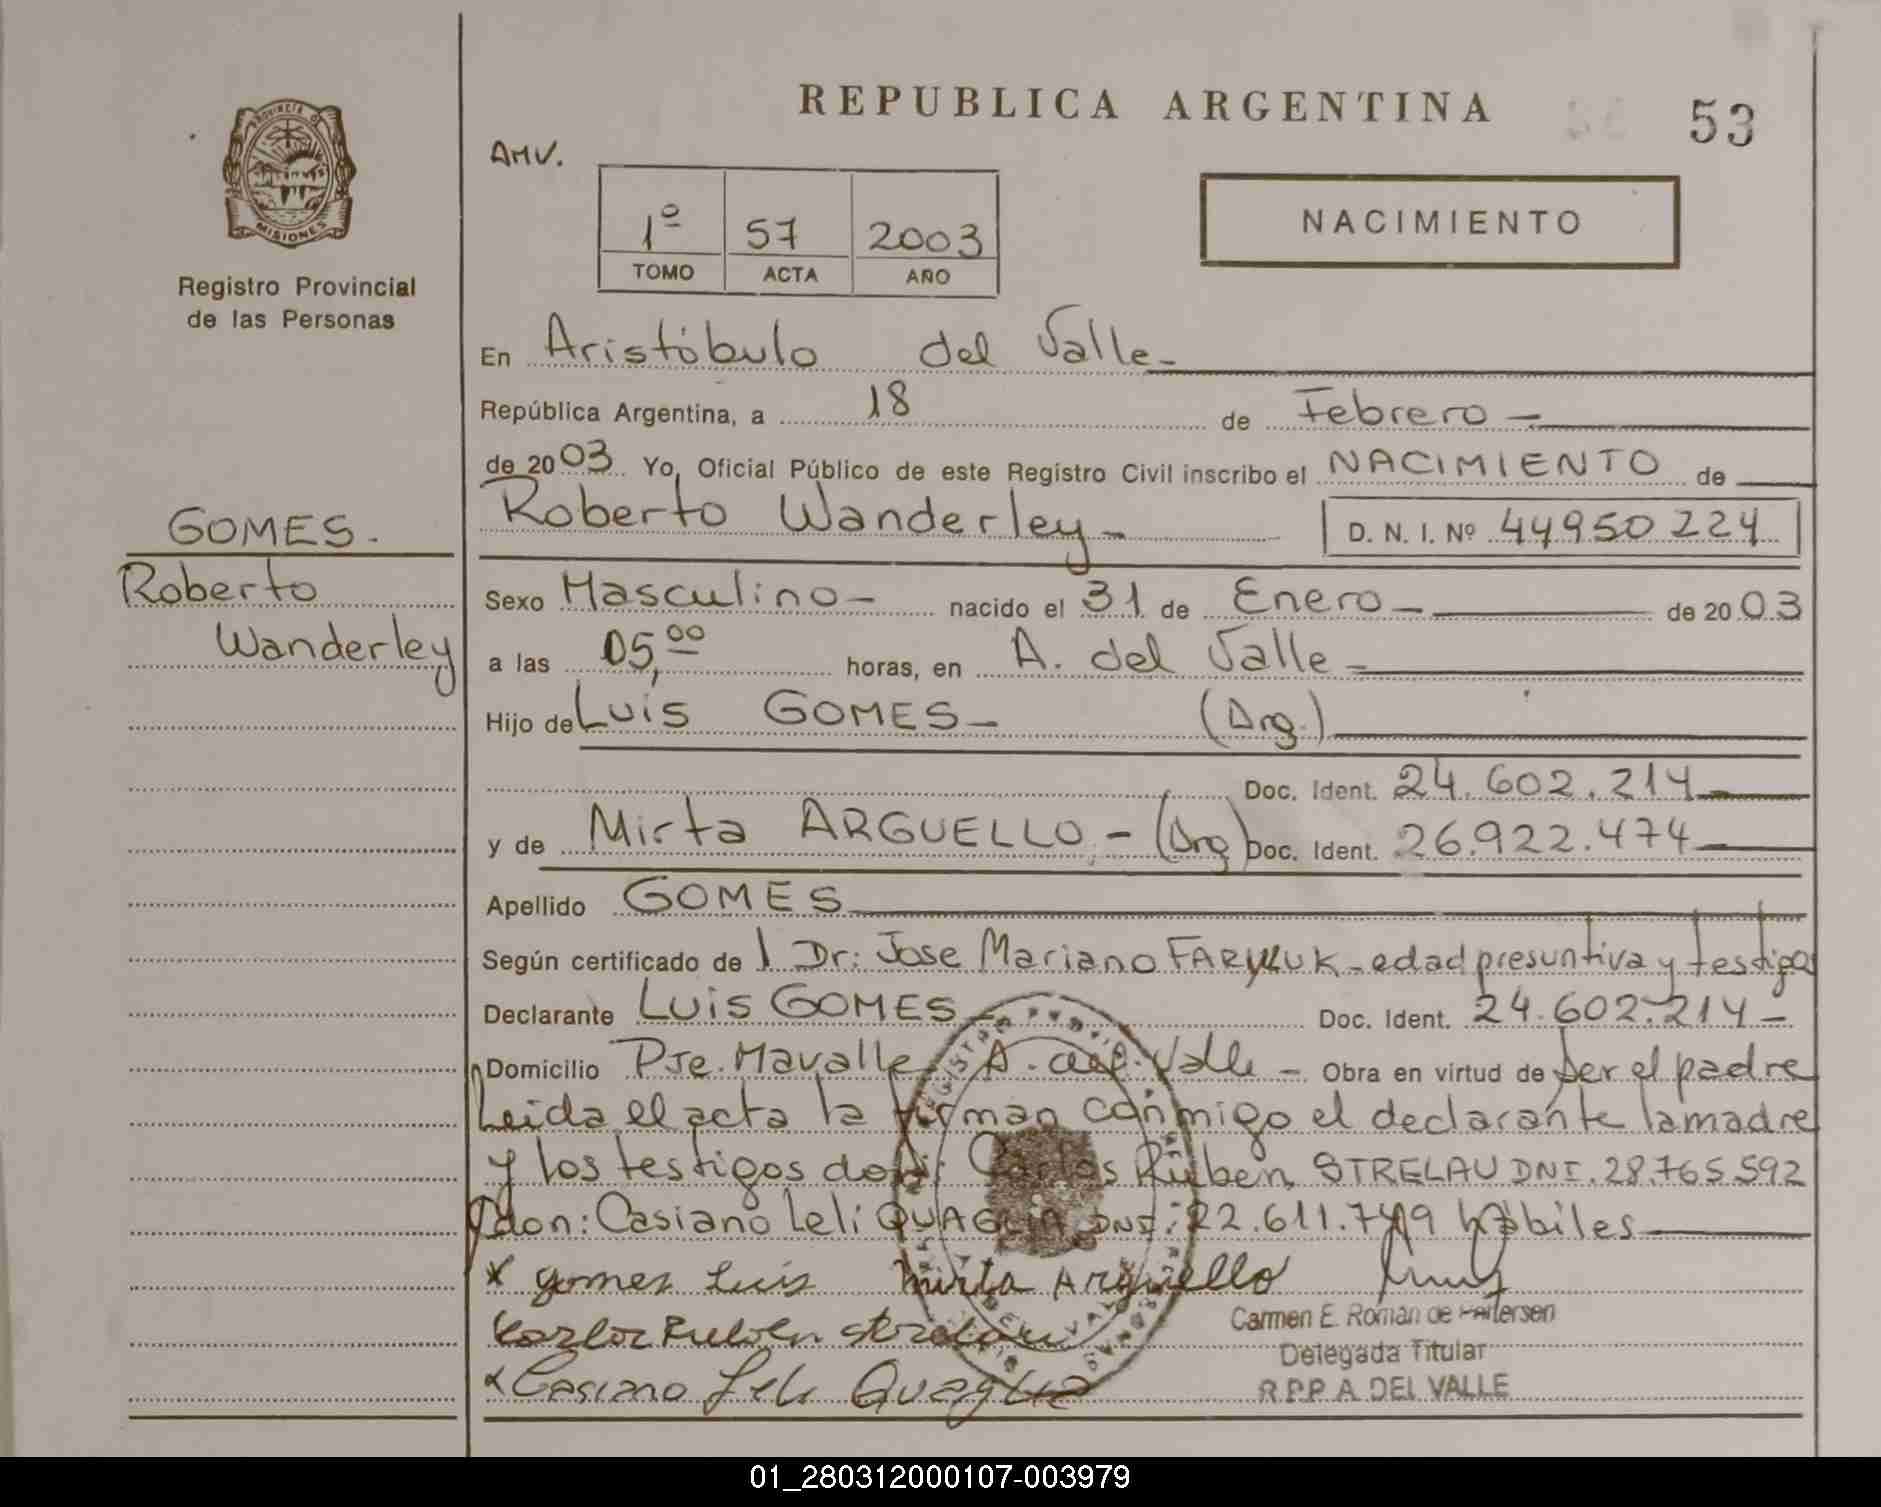 REPUBLICA ARGENTINA
53
AMV.
PROVINCIA D
MISIONES
Registro Provincial
de las Personas
1º 57 2003
TOMO ACTA AÑO
NACIMIENTO
En Aristóbulo del Valle-
República Argentina, a 18 de Febrero -
de 2003 Yo, Oficial Público de este Registro Civil inscribo el NACIMIENTO de
Roberto Wanderley- D. N. I. Nº 44950224
GOMES.
Roberto
Wanderley
Sexo Masculino- nacido el 31 de Enero- de 2003
a las 05,00 horas, en A. del Valle-
Hijo de Luis GOMES- (Arg.)
Doc. Ident. 24.602.214
y de Mirta ARGUELLO.- (Arg) Doc. Ident. 26.922.474
Apellido GOMES
Según certificado de 1 Dr: Jose Mariano edad presuntiva y testigo
Declarante Luis GOMES- Doc. Ident. 24.602.214-
Domicilio Pje. Mavalle A. del Valle - Obra en virtud de ser el padre
Leida el acta la firman conmigo el declarante la madre
y los testigos don: Carlos Ruben STRELAU DNI. 28.765.592
don: Casiano Leli QUAGLIA DNI: 22.611.749 hábiles
x gomes Luis Mirta Arguello
Carmen E. Román de
Karlos Ruben Strelau
Delegada Titular
x Casiano Leli Quaglia
R.P.P. A. DEL VALLE
01_280312000107-003979